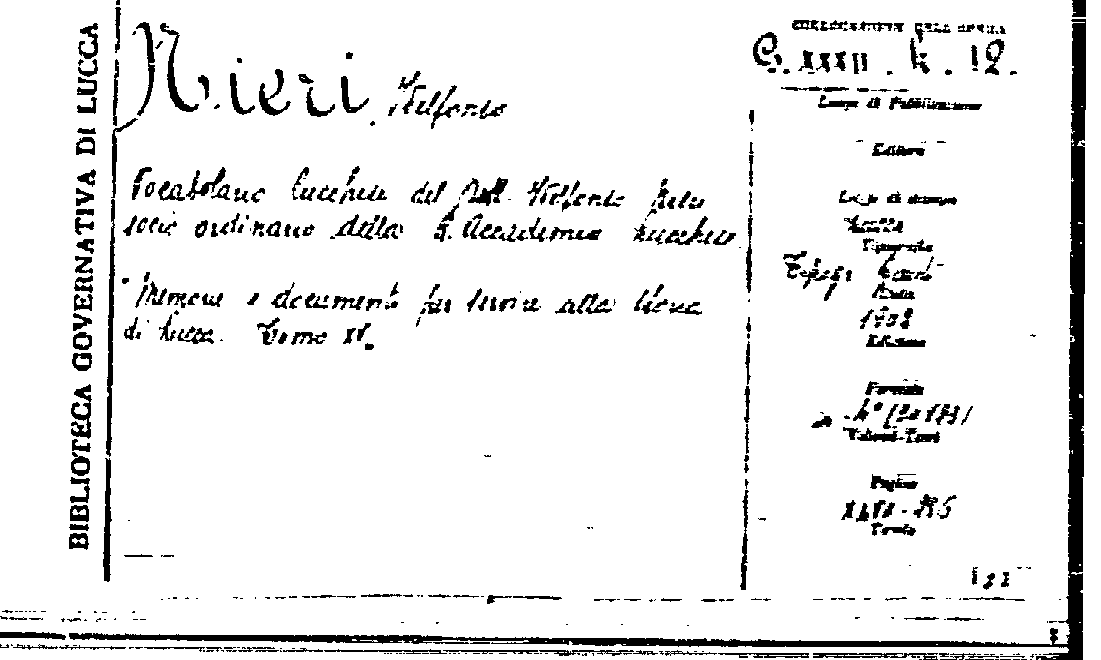 BIBLIOTECA GOVERNATIVA DI LUCCA
Nieri, Idelfonso
Vocabolario lucchese del Dott. Idelfonso Nieri
socio ordinario della R. Accademia Lucchese
"Memorie e documenti per servire alla storia
di Lucca. Tomo XV.
COLLOCAZIONE DELL'OPERA
G. XXXII. K. 12.
Luogo di Pubblicazione
Editore
Luogo di stampa
Lucca
Tipografia
Tipogr.
Data
1902
Edizione
Formato
4°
Volumi-Tomi
Pagine
Tavole